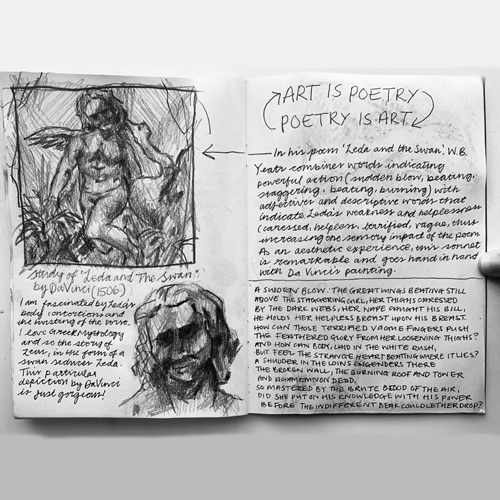 Study of 'Leda and The Swan'
by DaVinci (1506)
I am fascinated by Leda's
body contortions and
the twisting of the torso.
I love Greek Mythology
and so the story of
Zeus, in the form of a
swan seduces Leda.
This particular
depiction by DaVinci
is just gorgeous!
ART IS POETRY
POETRY IS ART
In his poem 'Leda and the Swan', W.B.
Yeats combines words indicating
powerful action (sudden blow, beating,
staggering, beating, burning) with
adjectives and descriptive words that
indicate Leda's weakness and helplessness
(caressed, helpless, terrified, vague, thus
increasing the sensory impact of the poem.
As an aesthetic experience, this sonnet
is remarkable and goes hand in hand
with Da Vinci's painting.
A SUDDEN BLOW: THE GREAT WINGS BEATING STILL
ABOVE THE STAGGERING GIRL, HER THIGHS CARESSED
BY THE DARK WEBS, HER NAPE CAUGHT IN HIS BILL,
HE HOLDS HER HELPLESS BREAST UPON HIS BREAST.
HOW CAN THOSE TERRIFIED VAGUE FINGERS PUSH
THE FEATHERED GLORY FROM HER LOOSENING THIGHS?
AND HOW CAN BODY, LAID IN THE WHITE RUSH,
BUT FEEL THE STRANGE HEART BEATING WHERE IT LIES?
A SHUDDER IN THE LOINS ENGENDERS THERE
THE BROKEN WALL, THE BURNING ROOF AND TOWER
AND AGAMEMNON DEAD.
SO MASTERED BY THE BRUTE BLOOD OF THE AIR,
DID SHE PUT ON HIS KNOWLEDGE WITH HIS POWER
BEFORE THE INDIFFERENT BEAK COULD LET HER DROP?